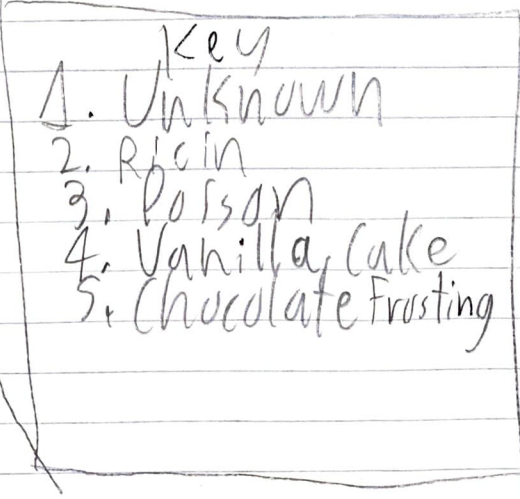 Key
1. Unknown
2. Ricin
3. Poison
4. Vanilla Cake
5. Chocolate Frosting